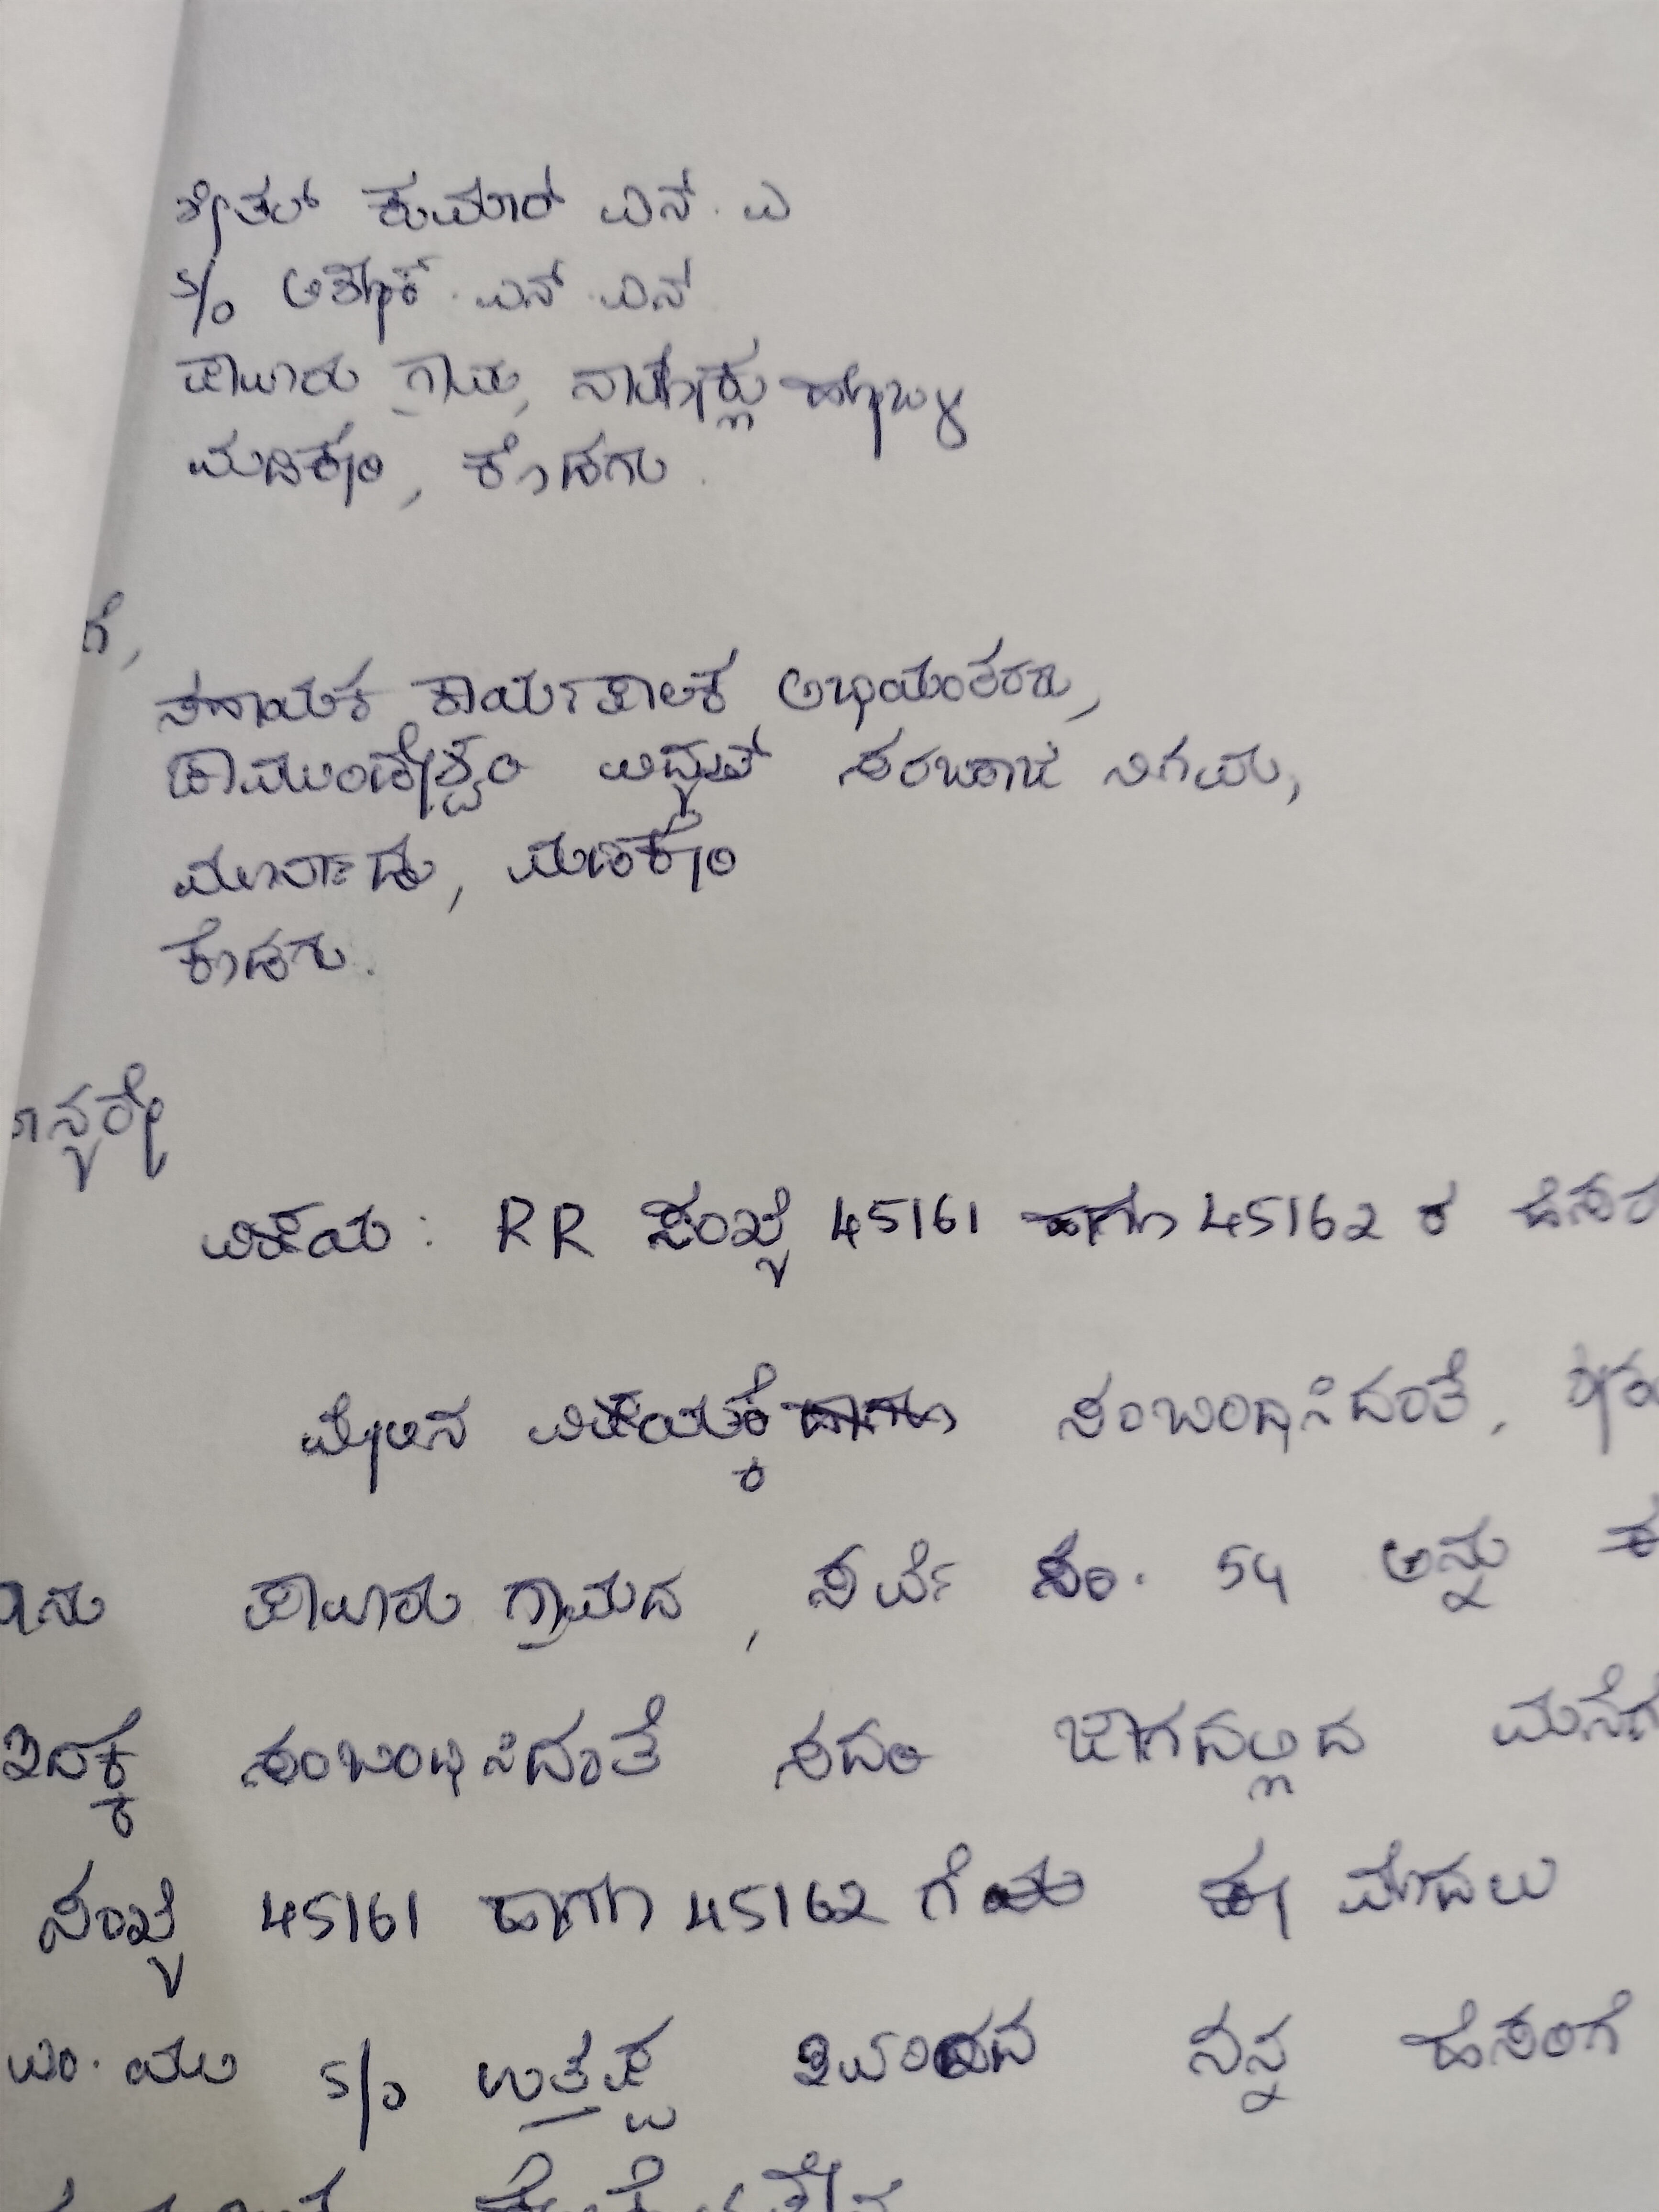 ಶೀತಲ್ ಕುಮಾರ್ ಎನ್. ಎ
S/o ಅಶೋಕ್. ಎನ್. ಎನ್
ಪಾಲೂರು ಗ್ರಾಮ, ನಾಪೋಕ್ಲು ಹೋಬಳಿ
ಮಡಿಕೇರಿ, ಕೊಡಗು.
ಗೆ,
ಸಹಾಯಕ ಕಾರ್ಯಪಾಲಕ ಅಭಿಯಂತರರು,
ಚಾಮುಂಡೇಶ್ವರಿ ವಿದ್ಯುತ್ ಸರಬರಾಜು ನಿಗಮ,
ಮೂರ್ನಾಡು, ಮಡಿಕೇರಿ
ಕೊಡಗು.
ಾನ್ಯರೇ
ವಿಷಯ: RR ಸಂಖ್ಯೆ 45161 ಹಾಗೂ 45162 ರ ಹೆಸರ
ಮೇಲಿನ ವಿಷಯಕ್ಕೆ ಸಂಬಂಧಿಸಿದಂತೆ,
ಪಾಲೂರು ಗ್ರಾಮದ, ಸರ್ವೆ ಸಂ. 54 ಅನ್ನು
ಇದಕ್ಕೆ ಸಂಬಂಧಿಸಿದಂತೆ ಸದರಿ ಜಾಗದಲ್ಲಿದ್ದ ಮನೆಗೆ
ಸಂಖ್ಯೆ 45161 ಹಾಗೂ 45162 ಈ ಮೊದಲು
S/o ಉತ್ತಪ್ಪ ಇವರಿಂದ ನನ್ನ ಹೆಸರಿಗೆ